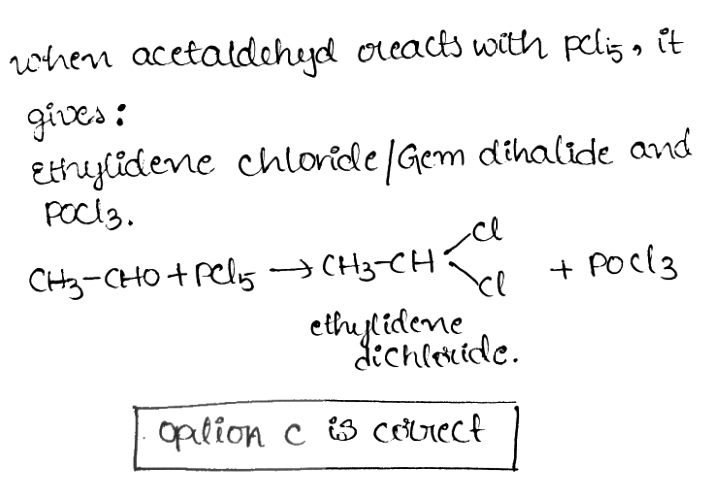 when acetaldehyd reacts with pcl5, it
gives:
Ethylidene chloride/Gem dihalide and
POCl3.
Cl
CH3-CHO + PCl5 → CH3-CH + POCl3
Cl
ethylidene
dichloride.
option c is correct